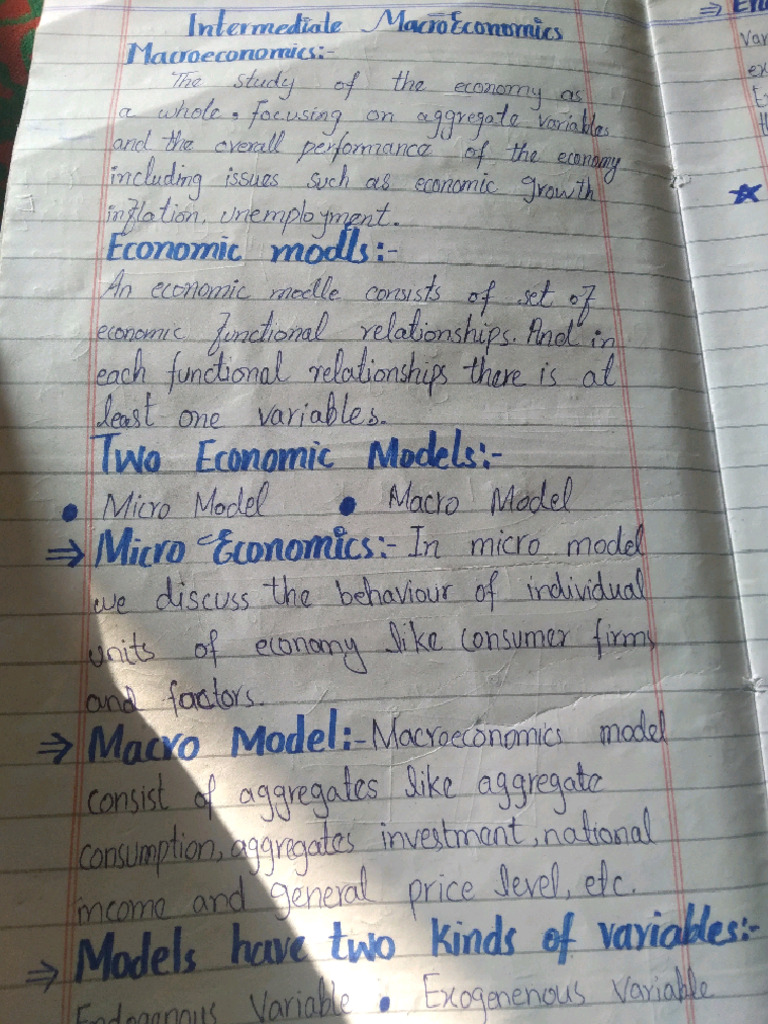 Intermediate MacroEconomics
Macroeconomics:-
The study of the economy as
a whole. Focusing on aggregate variables
and the overall performance of the economy
including issues such as economic growth
inflation, unemployment.
Economic modls:-
An economic modle consists of set of
economic functional relationships. And in
each functional relationships there is at
least one variables.
Two Economic Models:-
• Micro Model • Macro Model
⇒ Micro Economics:- In micro model
we discuss the behaviour of individual
units of economy like consumer firms
and factors.
⇒ Macro Model:- Macroeconomics model
consist of aggregates like aggregate
consumption, aggregates investment, national
income and general price level, etc.
⇒ Models have two kinds of variables:-
Endogenous Variable • Exogenenous Variable
⇒
Var
ex